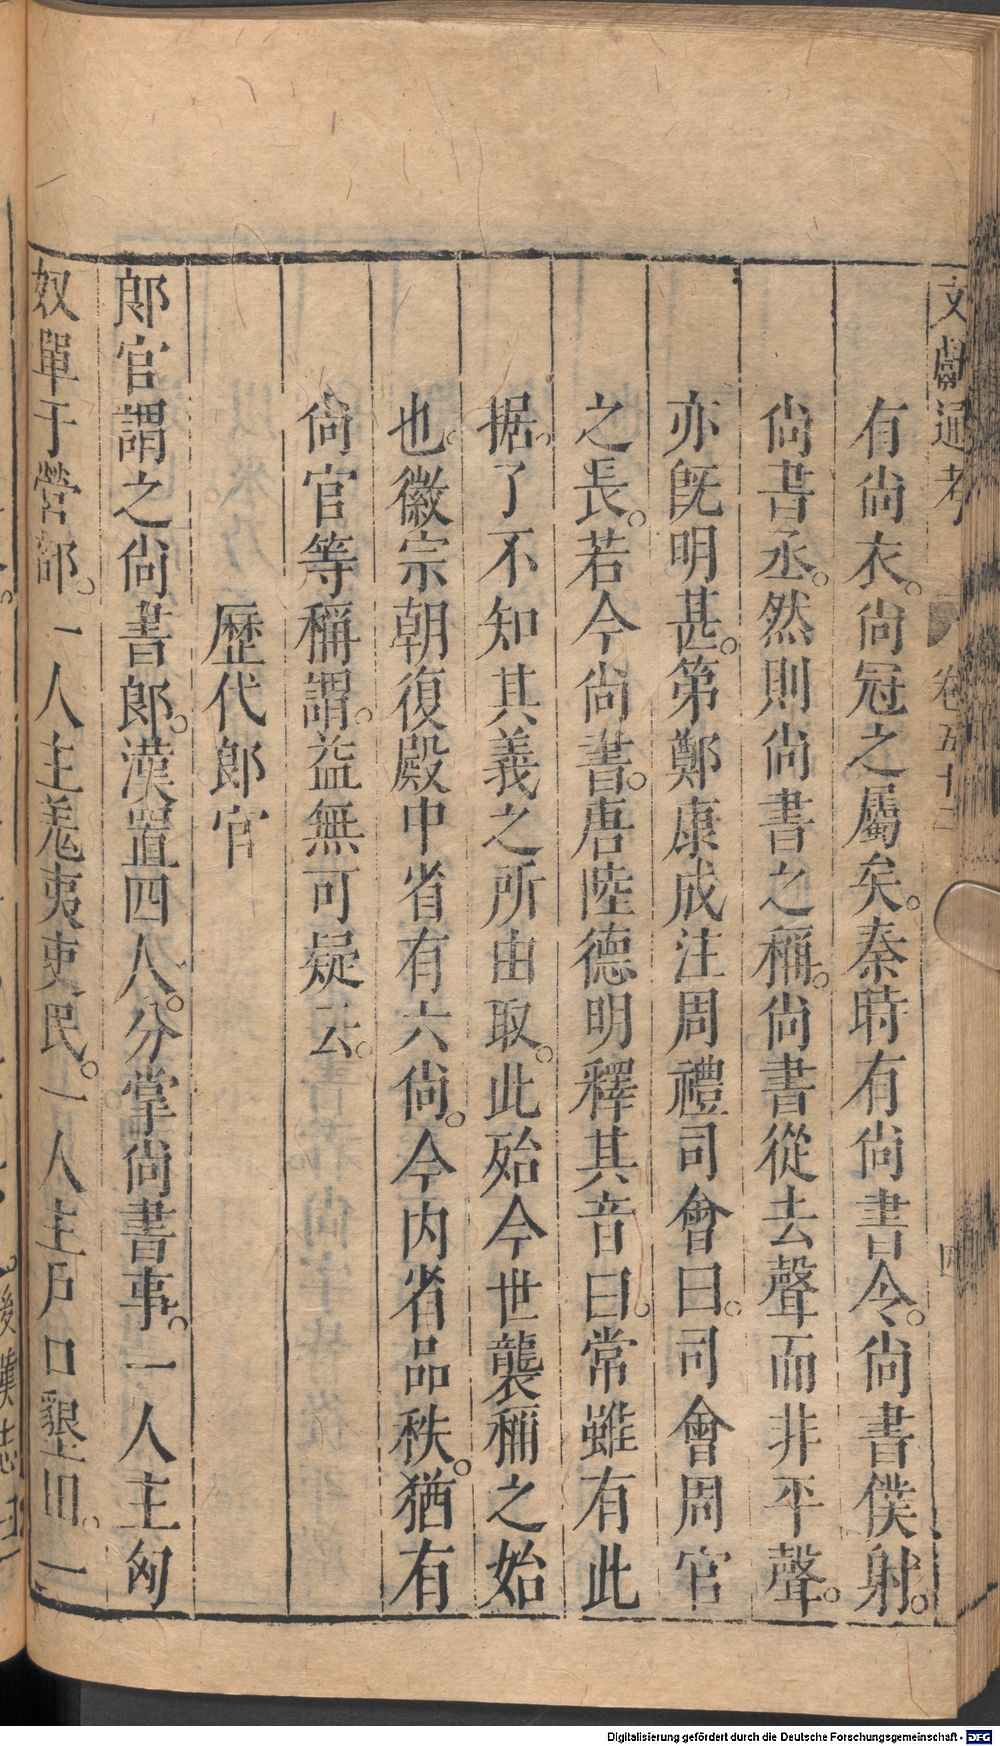 文獻通考 卷五十二 四
有尚衣。尚冠之屬矣。秦時有尚書令。尚書僕射。
尚書丞。然則尚書之稱。尚書從去聲而非平聲。
亦旣明甚。第鄭康成注周禮司會曰。司會周官
之長。若今尚書。唐陸德明釋其音曰。常雖有此
据。了不知其義之所由取。此殆今世襲稱之始
也。徽宗朝復殿中省有六尚。今内省品秩。猶有
尚官等稱謂。益無可疑云。
歷代郎官
郎官謂之尚書郎。漢置四人。分掌尚書事。一人主匈
奴單于營部。一人主羗夷吏民。一人主戶口墾田。一
後漢志
Digitalisierung gefördert durch die Deutsche Forschungsgemeinschaft - DFG